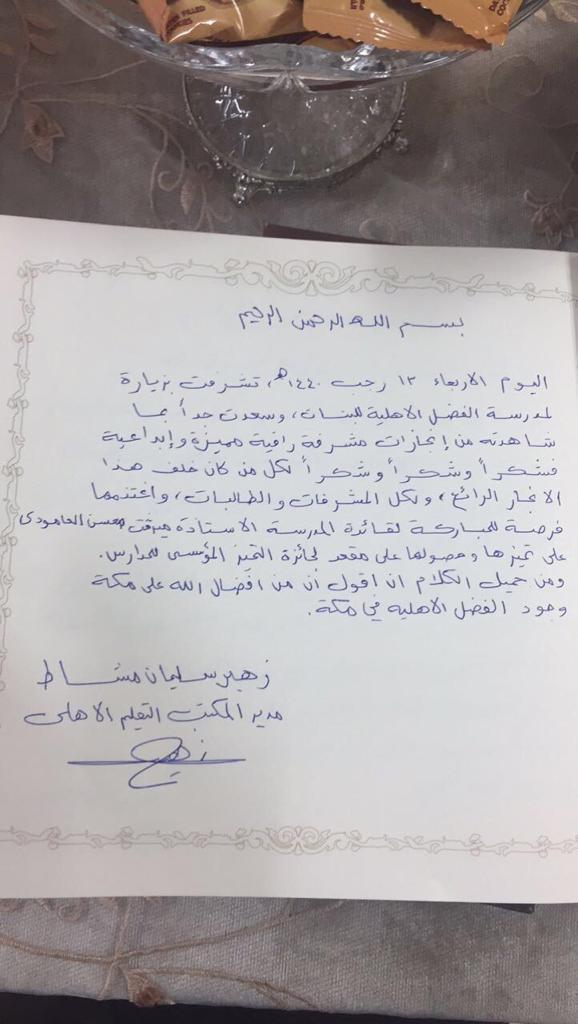 FILLED
بسم الله الرحمن الرحيم
اليوم الاربعاء ١٣ رجب ١٤٤٠هـ، تشرفت بزيارة
لمدرسة الفضل الاهلية للبنات، وسعدت جداً بما
شاهدته من إنجازات مشرفة راقية مميزة وإبداعية
فشكراً وشكراً وشكراً لكل من كان خلف هذا
الانجاز الرائع، ولكل المشرفات والطالبات، واغتنمها
فرصة للمباركة لقائدة المدرسة الاستاذة محسن العامودي
على تميزها وحصولها على مقعد لجائزة التميز المؤسسي للمدارس.
ومن جميل الكلام ان اقول أن من افضال الله على مكة
وجود الفضل الاهلية في مكة.
زهير سليمان مشاط
مدير المكتب التعليم الاهلي
زهير